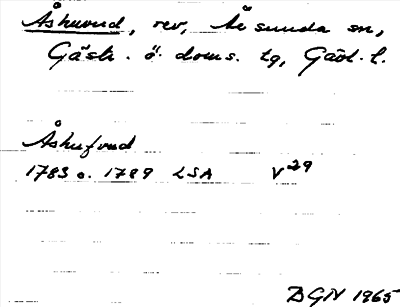 Åshuvud, rev, Årsunda sn,
Gästr. ö. doms. tg, Gävl. l.
Åshufvud
1783 o. 1789 LSA V29
DGN 1965